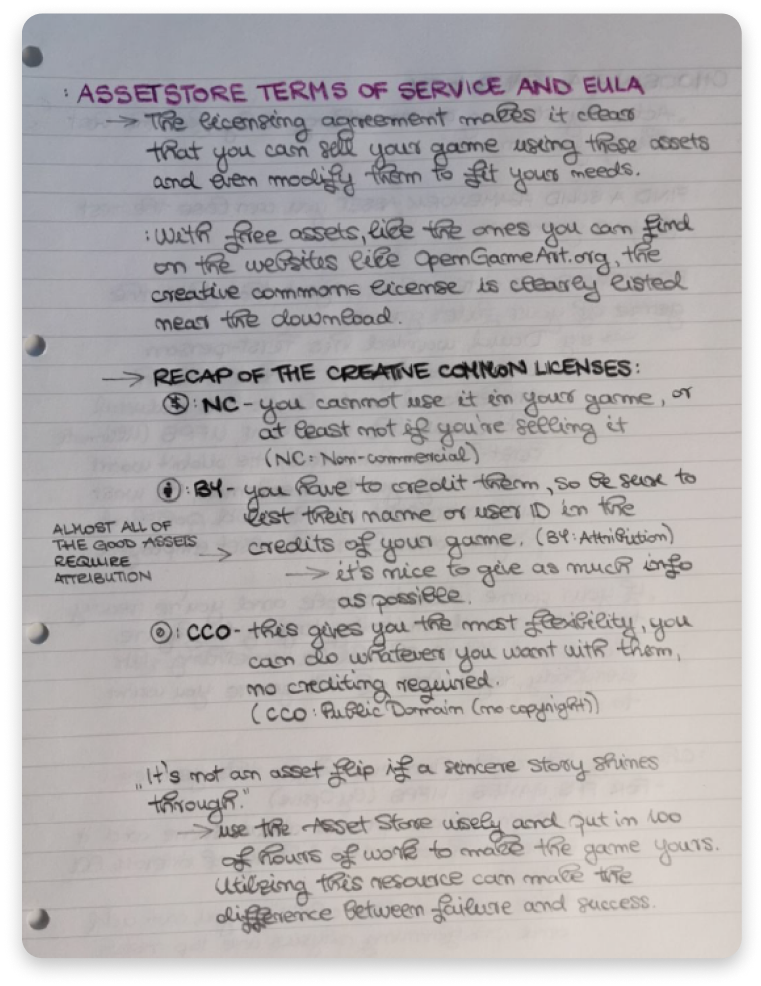 : ASSETSTORE TERMS OF SERVICE AND EULA
→ The licensing agreement makes it clear
that you can sell your game using those assets
and even modify them to fit your needs.
: With free assets, like the ones you can find
on the websites like OpenGameArt.org, the
creative commons license is clearly listed
near the download.
→ RECAP OF THE CREATIVE COMMON LICENSES:
: NC - you cannot use it in your game, or
at least not if you're selling it
(NC: Non-commercial)
: BY - you have to credit them, so be sure to
list their name or user ID in the
ALMOST ALL OF
THE GOOD ASSETS
REQUIRE
ATTRIBUTION
→ credits of your game. (BY: Attribution)
→ it's nice to give as much info
as possible.
: CCO - this gives you the most flexibility, you
can do whatever you want with them,
no crediting required.
(CCO: Public Domain (no copyright))
„It's not an asset flip if a sincere story shines
through."
→ use the Asset Store wisely and put in 100
of hours of work to make the game yours.
Utilizing this resource can make the
difference between failure and success.